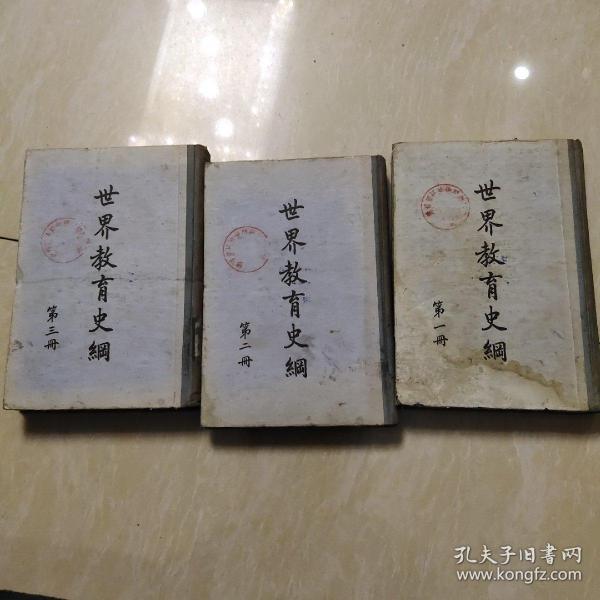 世界教育史綱
第三冊
世界教育史綱
第二冊
世界教育史綱
第一冊
孔夫子旧书网
www.kongfz.com